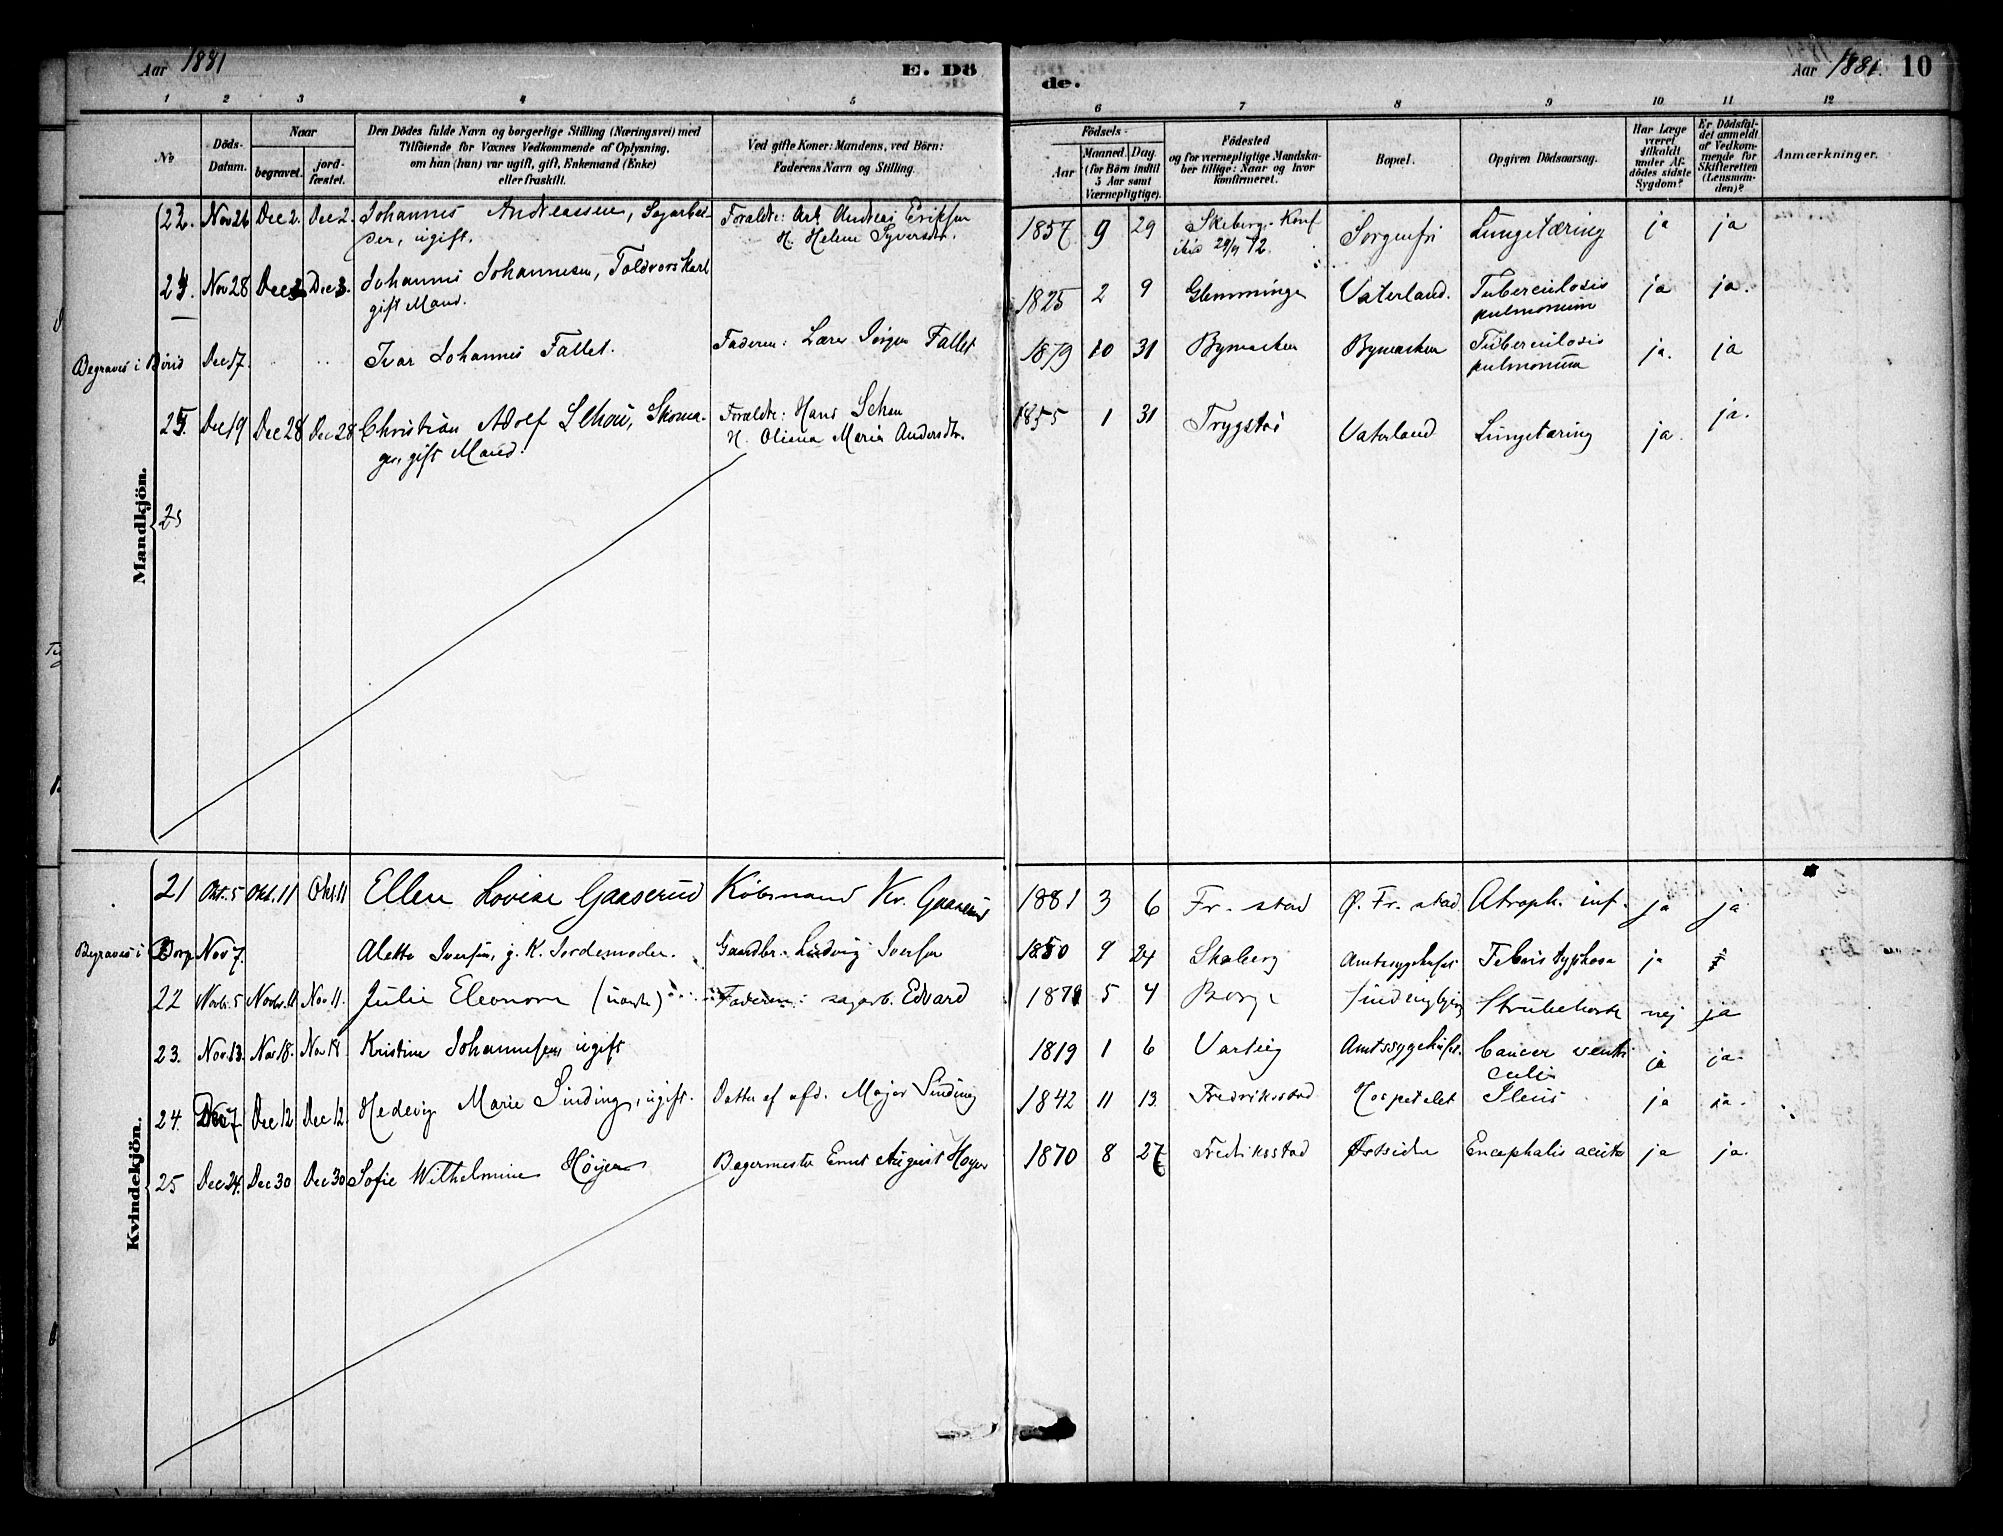 Aar 1881
E. Dö
de.
Aar 1881. 10
1 2 3 4 5 6 7 8 9 10 11 12
No
Döds-
Datum.
Naar
begravet.
jord-
fæstet.
Den Dödes fulde Navn og borgerlige Stilling (Næringsvei) med
Tilföiende for Voxnes Vedkommende af Oplysning,
om han (hun) var ugift, gift, Enkemand (Enke)
eller fraskilt.
Ved gifte Koner: Mandens, ved Börn:
Faderens Navn og Stilling.
Födsels-
Aar
Maaned. Dag.
(for Börn indtil
5 Aar samt
Værnepligtige).
Födested
og for værnepligtige Mandska-
ber tillige: Naar og hvor
konfirmeret.
Bopæl.
Opgiven Dödsaarsag.
Har Læge
været
tilkaldt
under Af-
dödes sidste
Sygdom?
Er Dödsfal-
det anmeldt
af Vedkom-
mende for
Skifteretten
(Lensman-
den)?
Anmærkninger.
Mandkjön.
Nov 26 Dec 2. Dec 2. Johannes Andreassen, Sagarbei-
der, ugift.
Foraldre: Arb. Andreas Eriksen
H. Helene Syversdtr.
1857 9 29 Skeberg. Konf
ibid 29/9 72.
Sorgenfri Lungetæring ja ja
24. Nov 28 Dec 3 Dec 3. Johannes Johannesen, Toldvorskarl
gift Mand.
1825 2 9 Glemminge Vaterland. Tuberculosis
pulmonum
ja ja.
Begraves i Dec 17. Ivar Johannes Fallet. Faderen: Lærer Jörgen Fallet
1879 10 31 Bymarken Bymarken Tuberculosis
pulmonum
ja. ja
25. Dec 19 Dec 28 Dec 28 Christian Adolf Schou, Skoma-
ger, gift Mand.
Foraldre: Hans Schou
H. Oliena Maria Andersdtr.
1855 1 31 Trygstad Vaterland Lungetæring ja. ja.
25
Kvindekjön.
21 Okt. 5 Okt. 11 Okt. 11 Ellen Lovise Gaaserud Köbmand Kr. Gaaserud
1881 3 6 Fr. stad Ø. Fr. stad Atroph. inf. ja ja
Begraves i Borg Nov 7. Alette Iversen, g. K. Jordemoder. Gaardbr. Ludvig Iversen
1850 9 24 Skeberg Amtssygehuset Febris typhosa ja
22 Novb. 5 Novb. 11 Nov 11. Julie Eleonora (uægte) Faderen: sagarb. Edvard
1879 5 4 Borge Strubehoste nej ja
23. Nov. 13. Nov 18. Nov 18 Kristine Johannesen ugift
1819 1 6 Varteig Amtssygehuset. Cancer ventri
culi
ja ja.
24. Dec 7 Dec 12 Dec 12. Hedevig Marie Sinding, ugift. Datter af afd. Major Sinding
1842 11 13 Fredriksstad Hospitalet Ileus ja ja.
25 Dec 24. Dec 30 Dec 30 Sofie Wilhelmine Höyer Bagermester Ernst August Höyer
1870 8 27 Fredriksstad Forsiden Encephalis acuta ja ja.